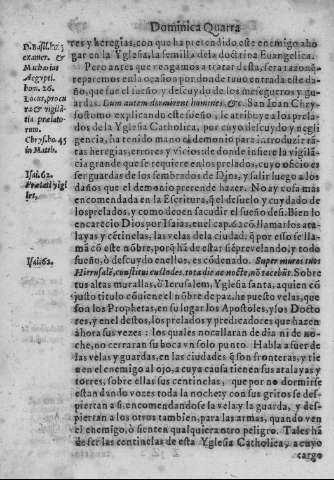 Dominica Quarta
D. Basil. ho. 3
examer. &
Macharius
Aegypti.
hom. 26.
Locus, procu
re & vigilã
tia prelato-
rum.
Chrys. ho. 45
in Matth.
Isai. 62.
Prælati vigi
les.
Isai. 62.
res y heregias, con que ha pretendido este enemigo aho
gar en la Yglesia, la semilla de la doctrina Euangelica.
Pero antes que vengamos a tratar desta, sera razon q̃
reparemos en la ocasion por donde tuuo entrada este da-
ño, que fue el sueño y descuydo de los mesegueros y guar-
das. Cum autem dormirent homines, &c. San Ioan Chry-
sostomo explicando este sueño, le atribuye a los prela-
dos de la Yglesia Catholica, por cuyo descuydo y negli
gencia, ha tenido mano el demonio para introduzir tã-
tas heregias, errores y vicios: de donde infiere la vigilã-
cia grande que se requiere en los prelados, cuyo oficio es
ser guardas de los sembrados de Dios, y salir luego a los
daños que el demonio pretende hazer. No ay cosa mas
encomendada en la Escritura, q̃ el desuelo y cuydado de
los prelados, y como deuen sacudir el sueño de si. Bien lo
encarecio Dios por Isaias, en el capa d cõ llamarlos ata-
layas y cẽtinelas, las velas de la ciudad, q̃ por esso se lla-
ma cõ este nõbre, porq̃ hã de estar siẽpre velando, y todo
sueño, ò descuydo en ellos, es codenado. Super muros tuos
Hierusalẽ, constitui custodes, tota die ac nocte, nõ tacebũt. Sobre
tus altas murallas, ò Ierusalem, Yglesia santa, a quien cõ
justo titulo cõuiene el nõbre de paz, he puesto velas, que
son a los Prophetas, en su lugar los Apostoles, y los Docto
res, y en el destos, los prelados y predicadores que hazen
ahora sus vezes: los quales no callaran de dia ni de no-
che, no cerraran su boca vn solo punto. Habla a fuer de
las velas y guardas, en las ciudades q̃ son fronteras, y tie
nen el enemigo al ojo, a cuya causa tienen sus atalayas y
torres, sobre ellas sus centinelas, que por no dormirse
estan dando vozes toda la noche: y con sus gritos se des-
piertan a si, encomendandose la vela y la guarda, y des-
piertan a los otros tambien, para las armas, quando ven
el enemigo, ò sienten qualquiera otro peligro. Tales hã
de ser las centinelas de esta Yglesia Catholica, a cuyo
cargo